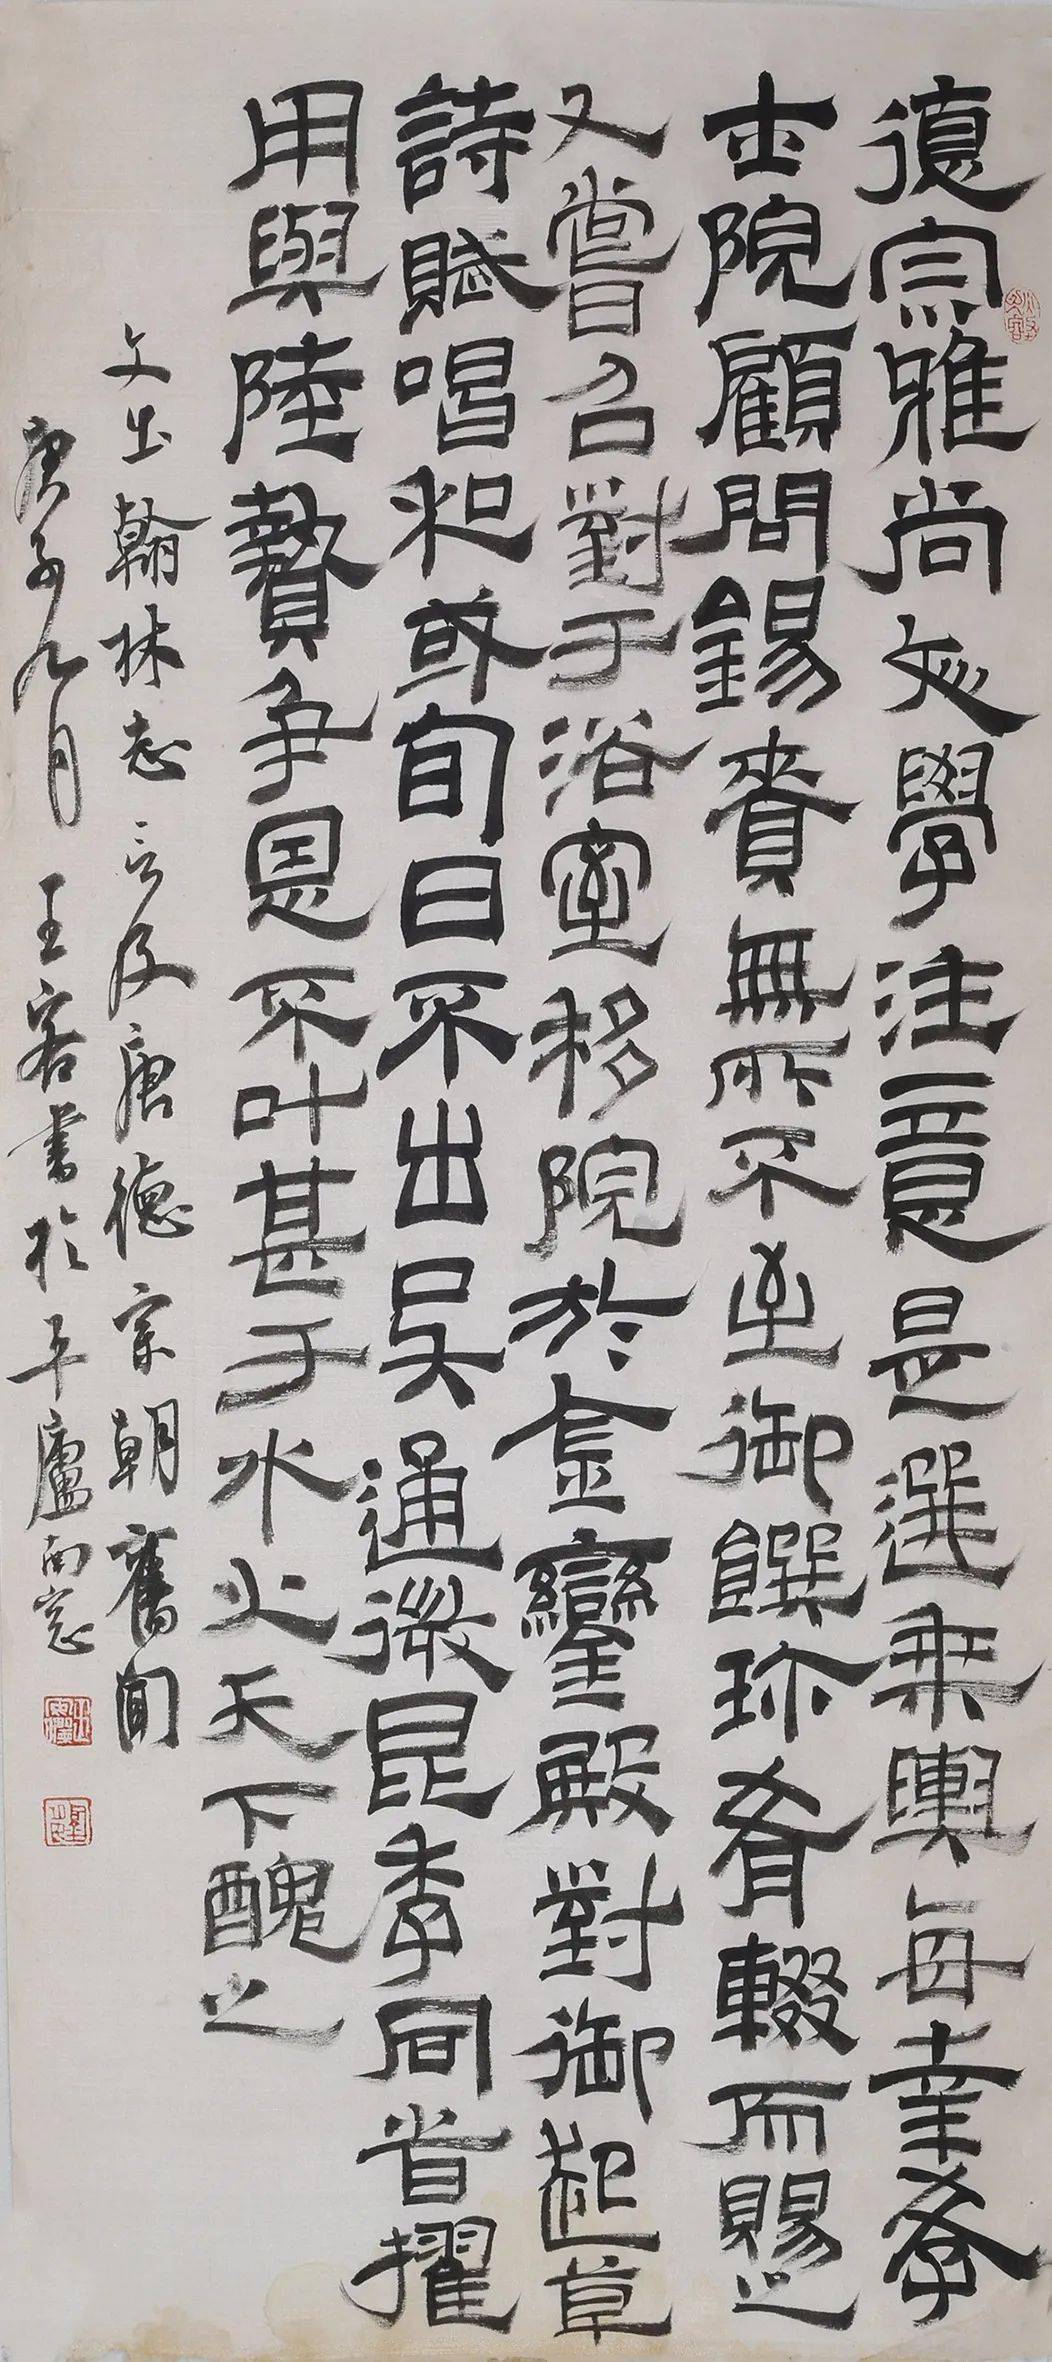 德宗雅尚文學注意是選乘輿每幸斈
士院顧問錫賚無所不至御饌珍肴輟而賜之
又嘗召對于浴室移院於金鑾殿對御起草
詩賦唱和或旬日不出吳通微昆季同旹擢
用與陸贄爭恩不叶甚于水火天下醜之
文出翰林志言及唐德宗朝舊聞
庚子九月王客書於平廬南窓